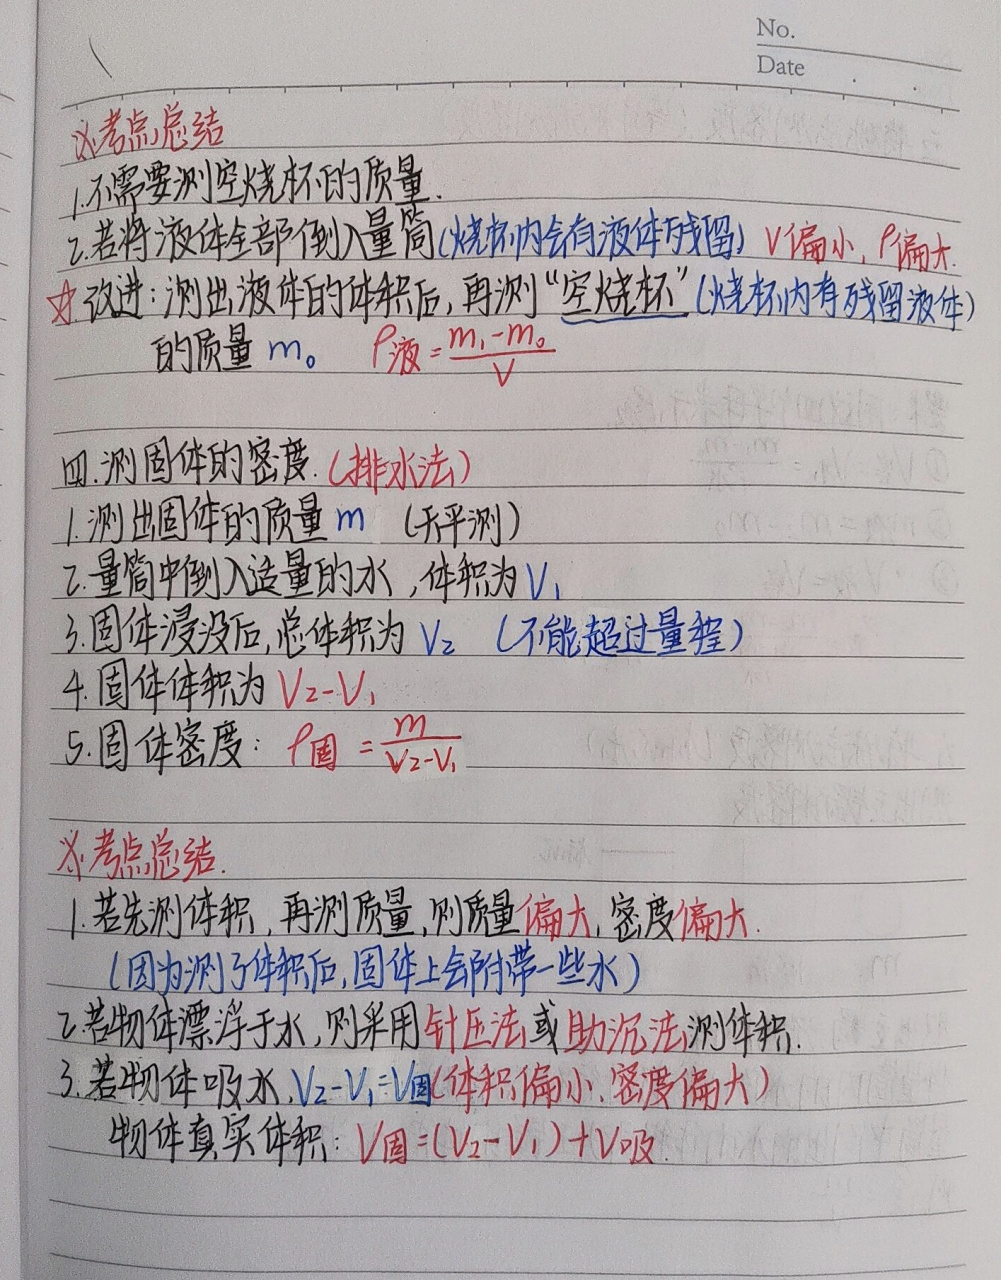 No.
Date
※考点总结
1.不需要测空烧杯的质量.
2.若将液体全部倒入量筒(烧杯内会有液体残留) V偏小,ρ偏大.
☆改进:测出液体的体积后,再测“空烧杯”(烧杯内有残留液体)
的质量 m₀ ρ液=(m₁-m₀)/V
四.测固体的密度.(排水法)
1.测出固体的质量 m (天平测)
2.量筒中倒入适量的水,体积为V₁
3.固体浸没后,总体积为 V₂ (不能超过量程)
4.固体体积为 V₂-V₁
5.固体密度: ρ固=m/(V₂-V₁)
※考点总结.
1.若先测体积,再测质量,则质量偏大,密度偏大.
(因为测了体积后,固体上会附带一些水)
2.若物体漂浮于水,则采用针压法或助沉法测体积.
3.若物体吸水,V₂-V₁=V固(体积偏小.密度偏大)
物体真实体积:V固=(V₂-V₁)+V吸.